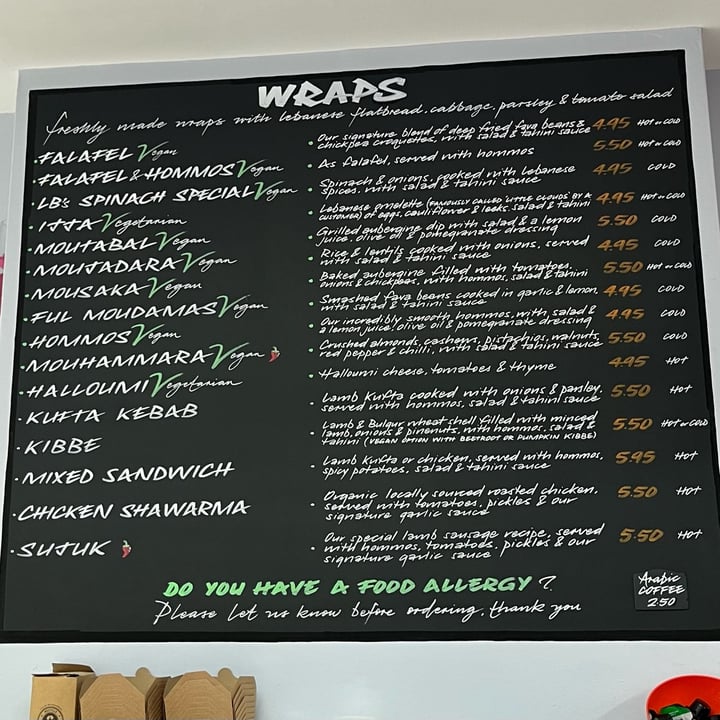 WRAPS
freshly made wraps with lebanese flatbread, cabbage, parsley & tomato salad
· FALAFEL Vegan
· Our signature blend of deep fried fava beans &
chickpea croquettes, with salad & tahini sauce 4.95 HOT or COLD
· FALAFEL & HOMMOS Vegan
· As falafel, served with hommos 5.50 HOT or COLD
· LB's SPINACH SPECIAL Vegan
· Spinach & onions, cooked with Lebanese
spices, with salad & tahini sauce 4.95 COLD
· IJJA Vegetarian
· Lebanese omelette (FAMOUSLY CALLED 'LITTLE CLOUDS' BY A
CUSTOMER) of eggs, cauliflower & leeks, salad & tahini 4.95 HOT or COLD
· MOUTABAL Vegan
· Grilled aubergine dip with salad & a lemon
juice, olive oil & pomegranate dressing 5.50 COLD
· MOUJADARA Vegan
· Rice & lentils cooked with onions, served
with salad & tahini sauce 4.95 COLD
· MOUSAKA Vegan
· Baked aubergine filled with tomatoes,
onions & chickpeas, with hommos, salad & tahini 5.50 HOT or COLD
· FUL MOUDAMAS Vegan
· Smashed fava beans cooked in garlic & lemon,
with salad & tahini sauce 4.95 COLD
· HOMMOS Vegan
· Our incredibly smooth hommos, with, salad &
a lemon juice, olive oil & pomegranate dressing 4.95 COLD
· MOUHAMMARA Vegan
· Crushed almonds, cashews, pistachios, walnuts,
red pepper & chilli, with salad & tahini sauce 5.50 COLD
· HALLOUMI Vegetarian
· Halloumi cheese, tomatoes & thyme 4.95 HOT
· KUFTA KEBAB
· Lamb kufta cooked with onions & parsley,
served with hommos, salad & tahini sauce 5.50 HOT
· KIBBE
· Lamb & Bulgur wheat shell filled with minced
lamb, onions & pinenuts, with hommos, salad &
tahini (VEGAN OPTION WITH BEETROOT OR PUMPKIN KIBBE) 5.50 HOT or COLD
· MIXED SANDWICH
· Lamb kufta or chicken, served with hommos,
spicy potatoes, salad & tahini sauce 5.95 HOT
· CHICKEN SHAWARMA
· Organic locally sourced roasted chicken,
served with tomatoes, pickles & our
signature garlic sauce 5.50 HOT
· SUJUK
· Our special lamb sausage recipe, served
with hommos, tomatoes, pickles & our
signature garlic sauce 5.50 HOT
DO YOU HAVE A FOOD ALLERGY?
Please let us know before ordering, thank you
Arabic
COFFEE
2.50